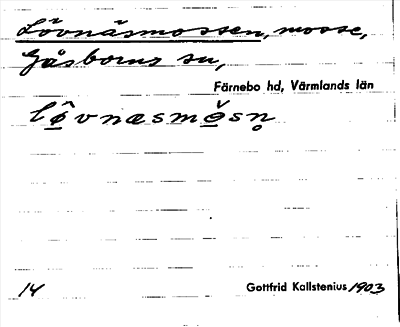 Lövnäsmossen, mosse,
Gåsborns sn,
Färnebo hd, Värmlands län
lø̂vnæsmø̌sn̥
14 Gottfrid Kallstenius 1903